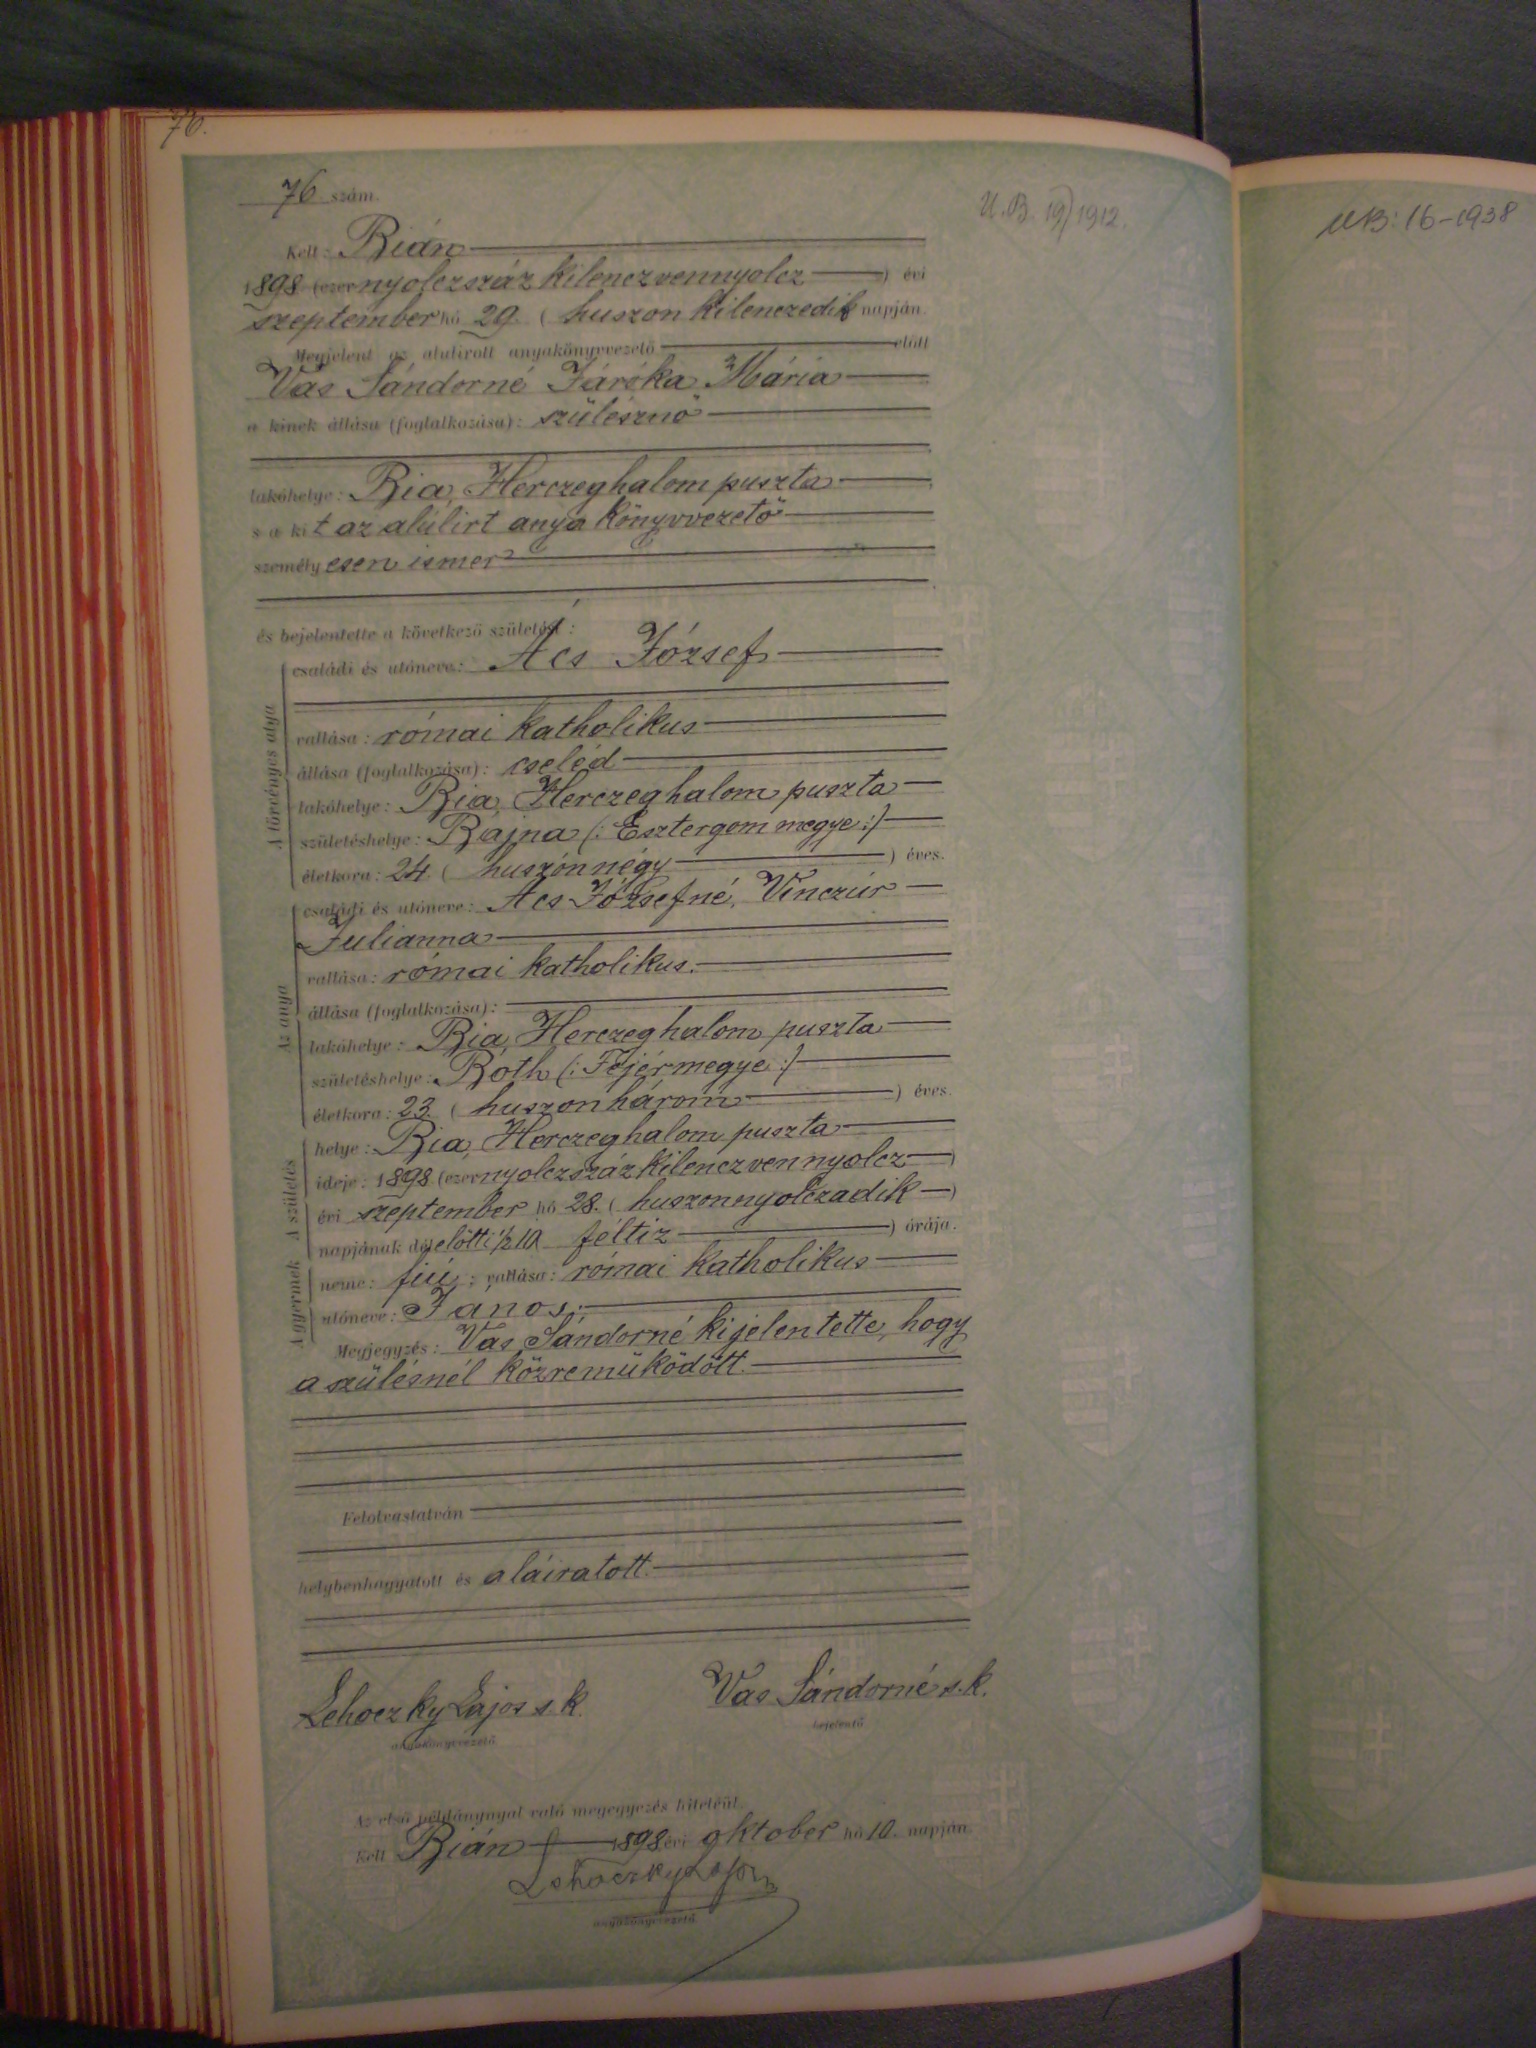 76.
76 szám.
U.B. 19/1912.
UB: 16-1938
Kelt: Bián
1898 (ezer nyolczszáz kilenczvennyolcz ) évi
szeptember hó 29. ( huszonkilenczedik napján.
Megjelent az alulirott anyakönyvvezető előtt
Vas Sándorné Járóka Mária
a kinek állása (foglalkozása): szülésznő
lakóhelye: Bia, Herczeghalom puszta
s a kit az alúlirt anyakönyvvezető
személyesen ismer
és bejelentette a következő születést:
A törvényes atya
családi és utóneve: Ács József
vallása: római katholikus
állása (foglalkozása): cseléd
lakóhelye: Bia, Herczeghalom puszta
születéshelye: Bajna (: Esztergom megye :)
életkora: 24. ( huszonnégy ) éves.
Az anya
családi és utóneve: Ács Józsefné, Vinczúr
Julianna
vallása: római katholikus.
állása (foglalkozása):
lakóhelye: Bia, Herczeghalom puszta
születéshelye: Both (: Fejérmegye :)
életkora: 23. ( huszonhárom ) éves.
A születés
helye: Bia, Herczeghalom puszta
ideje: 1898 (ezer nyolczszáz kilenczvennyolcz )
évi szeptember hó 28. ( huszonnyolczadik )
napjának délelőtti ½10 féltiz ) órája.
A gyermek
neme: fiú; vallása: római katholikus
utóneve: János;
Megjegyzés: Vas Sándorné kijelentette, hogy
a szülésnél közreműködött.
Felolvastatván
helybenhagyatott és aláiratott.
Lehoczky Lajos s.k. Vas Sándorné s.k.
anyakönyvvezető bejelentő
Az első példánynyal való megegyezés hiteléül.
Kelt Bián 1898 évi oktober hó 10. napján.
Lehoczky Lajos
anyakönyvvezető